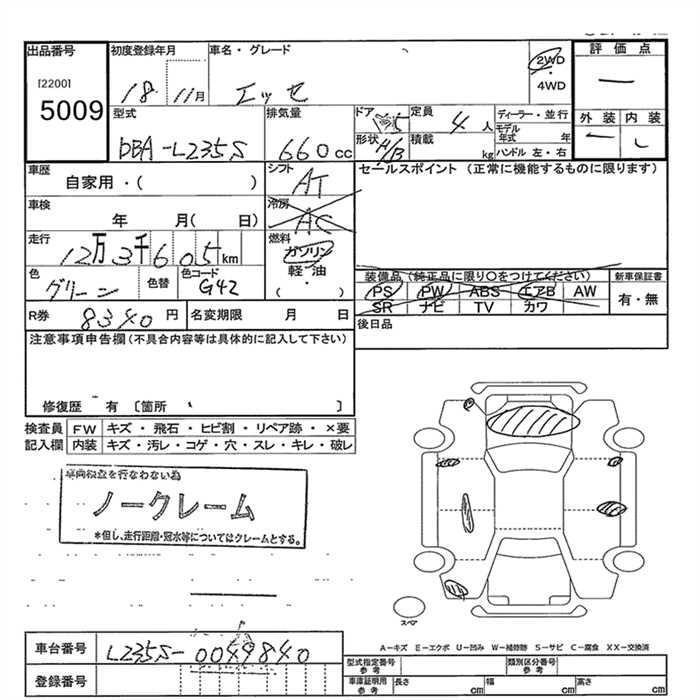 出品番号
[2200]
5009
初度登録年月
18 11月
車名・グレード
エッセ
2WD
・
4WD
評価点
—
外装 内装
型式
DBA-L235S
排気量
660cc
ドア 5
形状 H/B
定員 4人
積載 kg
ディーラー・並行
モデル年式 年
ハンドル 左・右
車歴
自家用・( )
シフト
AT
セールスポイント (正常に機能するものに限ります)
車検
年 月( 日)
冷房
AC
走行
12万3千605km
燃料
ガソリン
軽・油
( )
色
グリーン
色替
色コード
G42
装備品(純正品に限り○をつけてください)
PS PW ABS エアB AW
SR ナビ TV カワ
新車保証書
有・無
R券 8340円
名変期限 月 日
後日品
注意事項申告欄(不具合内容等は具体的に記入して下さい)
修復歴 有 〔箇所 〕
検査員記入欄
FW キズ・飛石・ヒビ割・リペア跡・×要
内装 キズ・汚レ・コゲ・穴・スレ・キレ・破レ
車両検査を行なわない為
ノークレーム
*但し、走行距離・冠水等についてはクレームとする。
スペア
A−キズ E−エクボ U−凹み W−補修跡 S−サビ C−腐食 XX−交換済
車台番号 L235S-0049840
登録番号
型式指定番号 参考
類別区分番号 参考
車庫証明用 参考
長さ cm
幅 cm
高さ cm